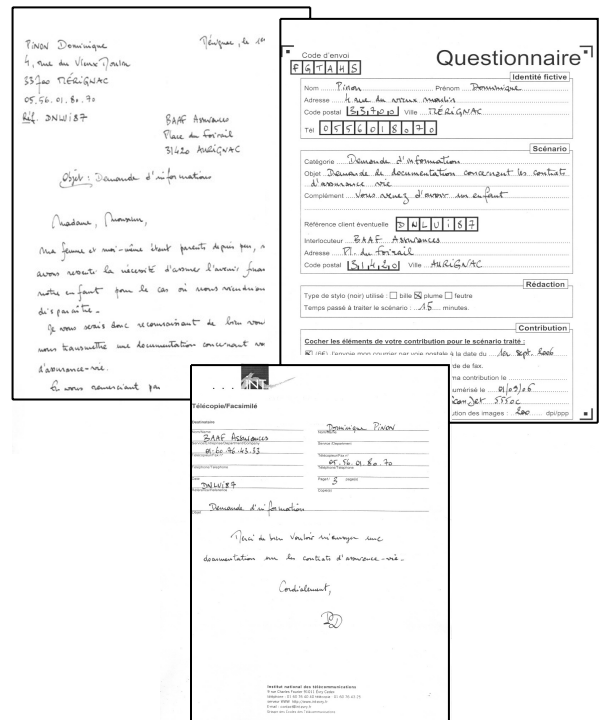 PINON Dominique
4, rue du Vieux Moulin
33700 MÉRIGNAC
05.56.01.80.70
Réf. DNLUI87
Mérignac, le 1er
BAAF Assurances
Place du Foirail
31420 AURIGNAC
Objet : Demande d'informations
Madame, Monsieur,
Ma femme et moi-même étant parents depuis peu, n
avons ressenti la nécessité d'assurer l'avenir finan
notre enfant pour le cas où nous viendrions
disparaître.
Je vous serais donc reconnaissant de bien vou
nous transmettre une documentation concernant vo
d'assurance-vie.
En vous remerciant par
Code d'envoi
FGTAHS
Questionnaire
Identité fictive
Nom Pinon Prénom Dominique
Adresse 4 rue du vieux moulin
Code postal 33700 Ville MÉRIGNAC
Tél 0556018070
Scénario
Catégorie Demande d'information
Objet Demande de documentation concernant les contrats
d'assurance vie
Complément Vous venez d'avoir un enfant
Référence client éventuelle DNLUI87
Interlocuteur BAAF Assurances
Adresse Pl. du foirail
Code postal 31420 Ville AURIGNAC
Rédaction
Type de stylo (noir) utilisé : bille plume feutre
Temps passé à traiter le scénario : 15 minutes.
Contribution
Cocher les éléments de votre contribution pour le scénario traité :
j'envoie mon courrier par voie postale à la date du 1er Sept. 2006
de de fax.
ma contribution le
umérisé le 01/09/06
ScanJet 5550c
ution des images : 200 dpi/ppp
INT
Télécopie/Facsimilé
Destinataire
BAAF Assurances
01.60.76.43.53
DNLUI87
Dominique PINON
05.56.01.80.70
Pages 3 page(s)
Objet Demande d'information
Merci de bien vouloir m'envoyer une
documentation sur les contrats d'assurance-vie.
Cordialement,
Institut national des télécommunications